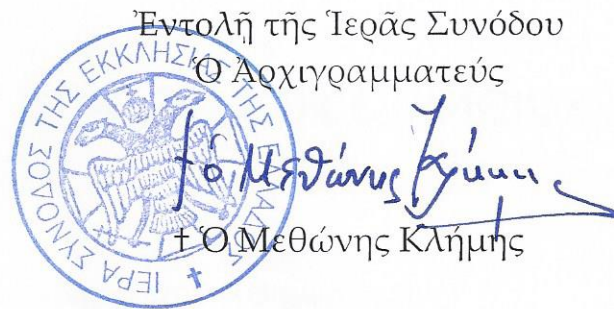 Ἐντολῇ τῆς Ἱερᾶς Συνόδου
Ὁ Ἀρχιγραμματεύς
ΙΕΡΑ ΣΥΝΟΔΟΣ ΤΗΣ ΕΚΚΛΗΣΙΑΣ ΤΗΣ ΕΛΛΑΔΟΣ
† ὁ Μεθώνης Κλήμης
† Ὁ Μεθώνης Κλήμης